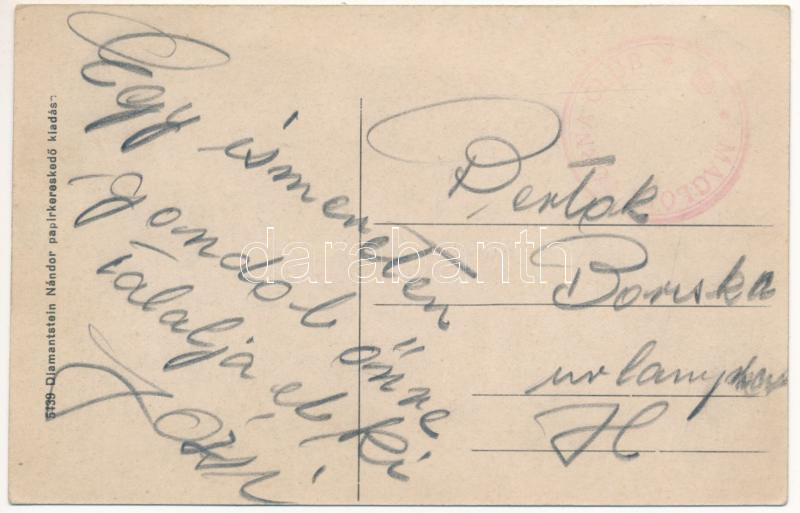 5439 Diamantstein Nándor papirkereskedő kiadása
Egy ismeretlen
gondol önre
tálalja el ki
Józsi
Pertok
Boriska
urlány
H
darabanth